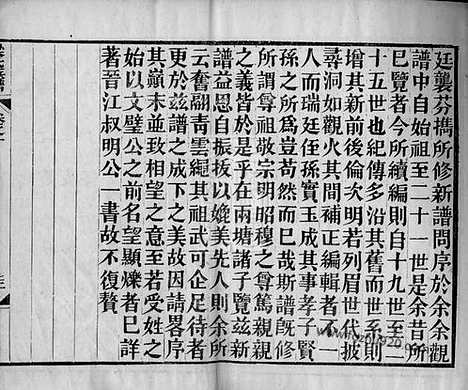 廷襲芬攜所修新譜問序於余余觀
譜中自始祖至二十一世是余昔所
已覽者今所續編則自十九世至二
十五世也紀傳多沿其舊而世系則
增其新前後倫次明若列眉世代披
尋洞如觀火其間補正編輯者不一
人而瑞廷侄孫實玉成其事孝子賢
孫之所為豈苟然而已哉斯譜既修
之義皆於是乎在兩塘諸子覽茲新
譜益思自振拔以媲美先人則余所
云奮翮青雲繩其祖武可企足待者
更於茲譜之成卜之故因請畧序
其顛末並致相望之意至若受姓之
始以文璧公之前名望顯爍者已詳
著晉江叔明公一書故不復贅